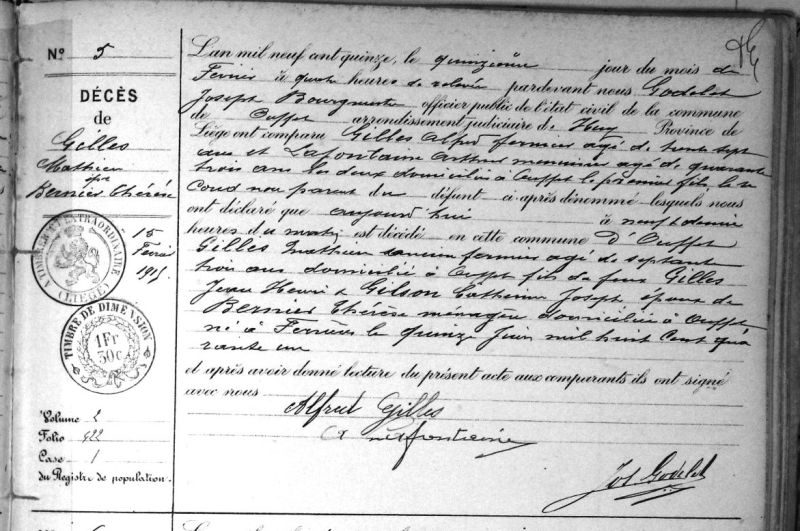 N° 5
DÉCÈS
de
Gilles
Mathieu
épx
Bernier Thérèse
15
Février
1915.
A L'ORD. & L'EXTRAORDINAIRE
(LIÈGE)
TIMBRE DE DIMENSION
1 Fr
30c
Volume 2
Folio 422
Case 1
du Registre de population.
L'an mil neuf cent quinze, le quinzième jour du mois de
Février à quatre heures de relevée pardevant nous Godelet
Joseph Bourgmestre officier public de l'état civil de la commune
de Ouffet arrondissement judiciaire d Huy Province de
Liège ont comparu Gilles Alfred fermier agé de trente sept
ans et Lafontaine Arthur menuisier agé de quarante
trois ans les deux domiciliés à Ouffet le premier fils, le se
cond non parent du défunt ci après dénommé lesquels nous
ont déclaré que aujourd'hui à neuf & demie
heures du matin est décédé en cette commune d'Ouffet
Gilles Mathieu ancien fermier agé de septante
trois ans domicilié à Ouffet fils de feux Gilles
Jean Henri & Gilson Catherine Joseph époux de
Bernier Thérèse ménagère domiciliée à Ouffet
né à Ferrières le quinze Juin mil huit cent qua
rante un
et après avoir donné lecture du présent acte aux comparants ils ont signé
avec nous
Alfred Gilles
A Lafontaine
Jos Godelet